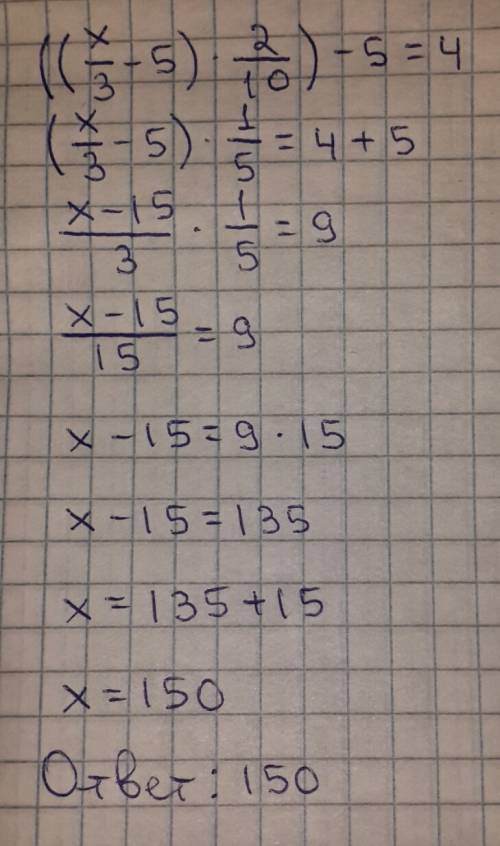 ((x/3 - 5) · 2/10) - 5 = 4
(x/3 - 5) · 1/5 = 4 + 5
x - 15/3 · 1/5 = 9
x - 15/15 = 9
x - 15 = 9 · 15
x - 15 = 135
x = 135 + 15
x = 150
Ответ: 150